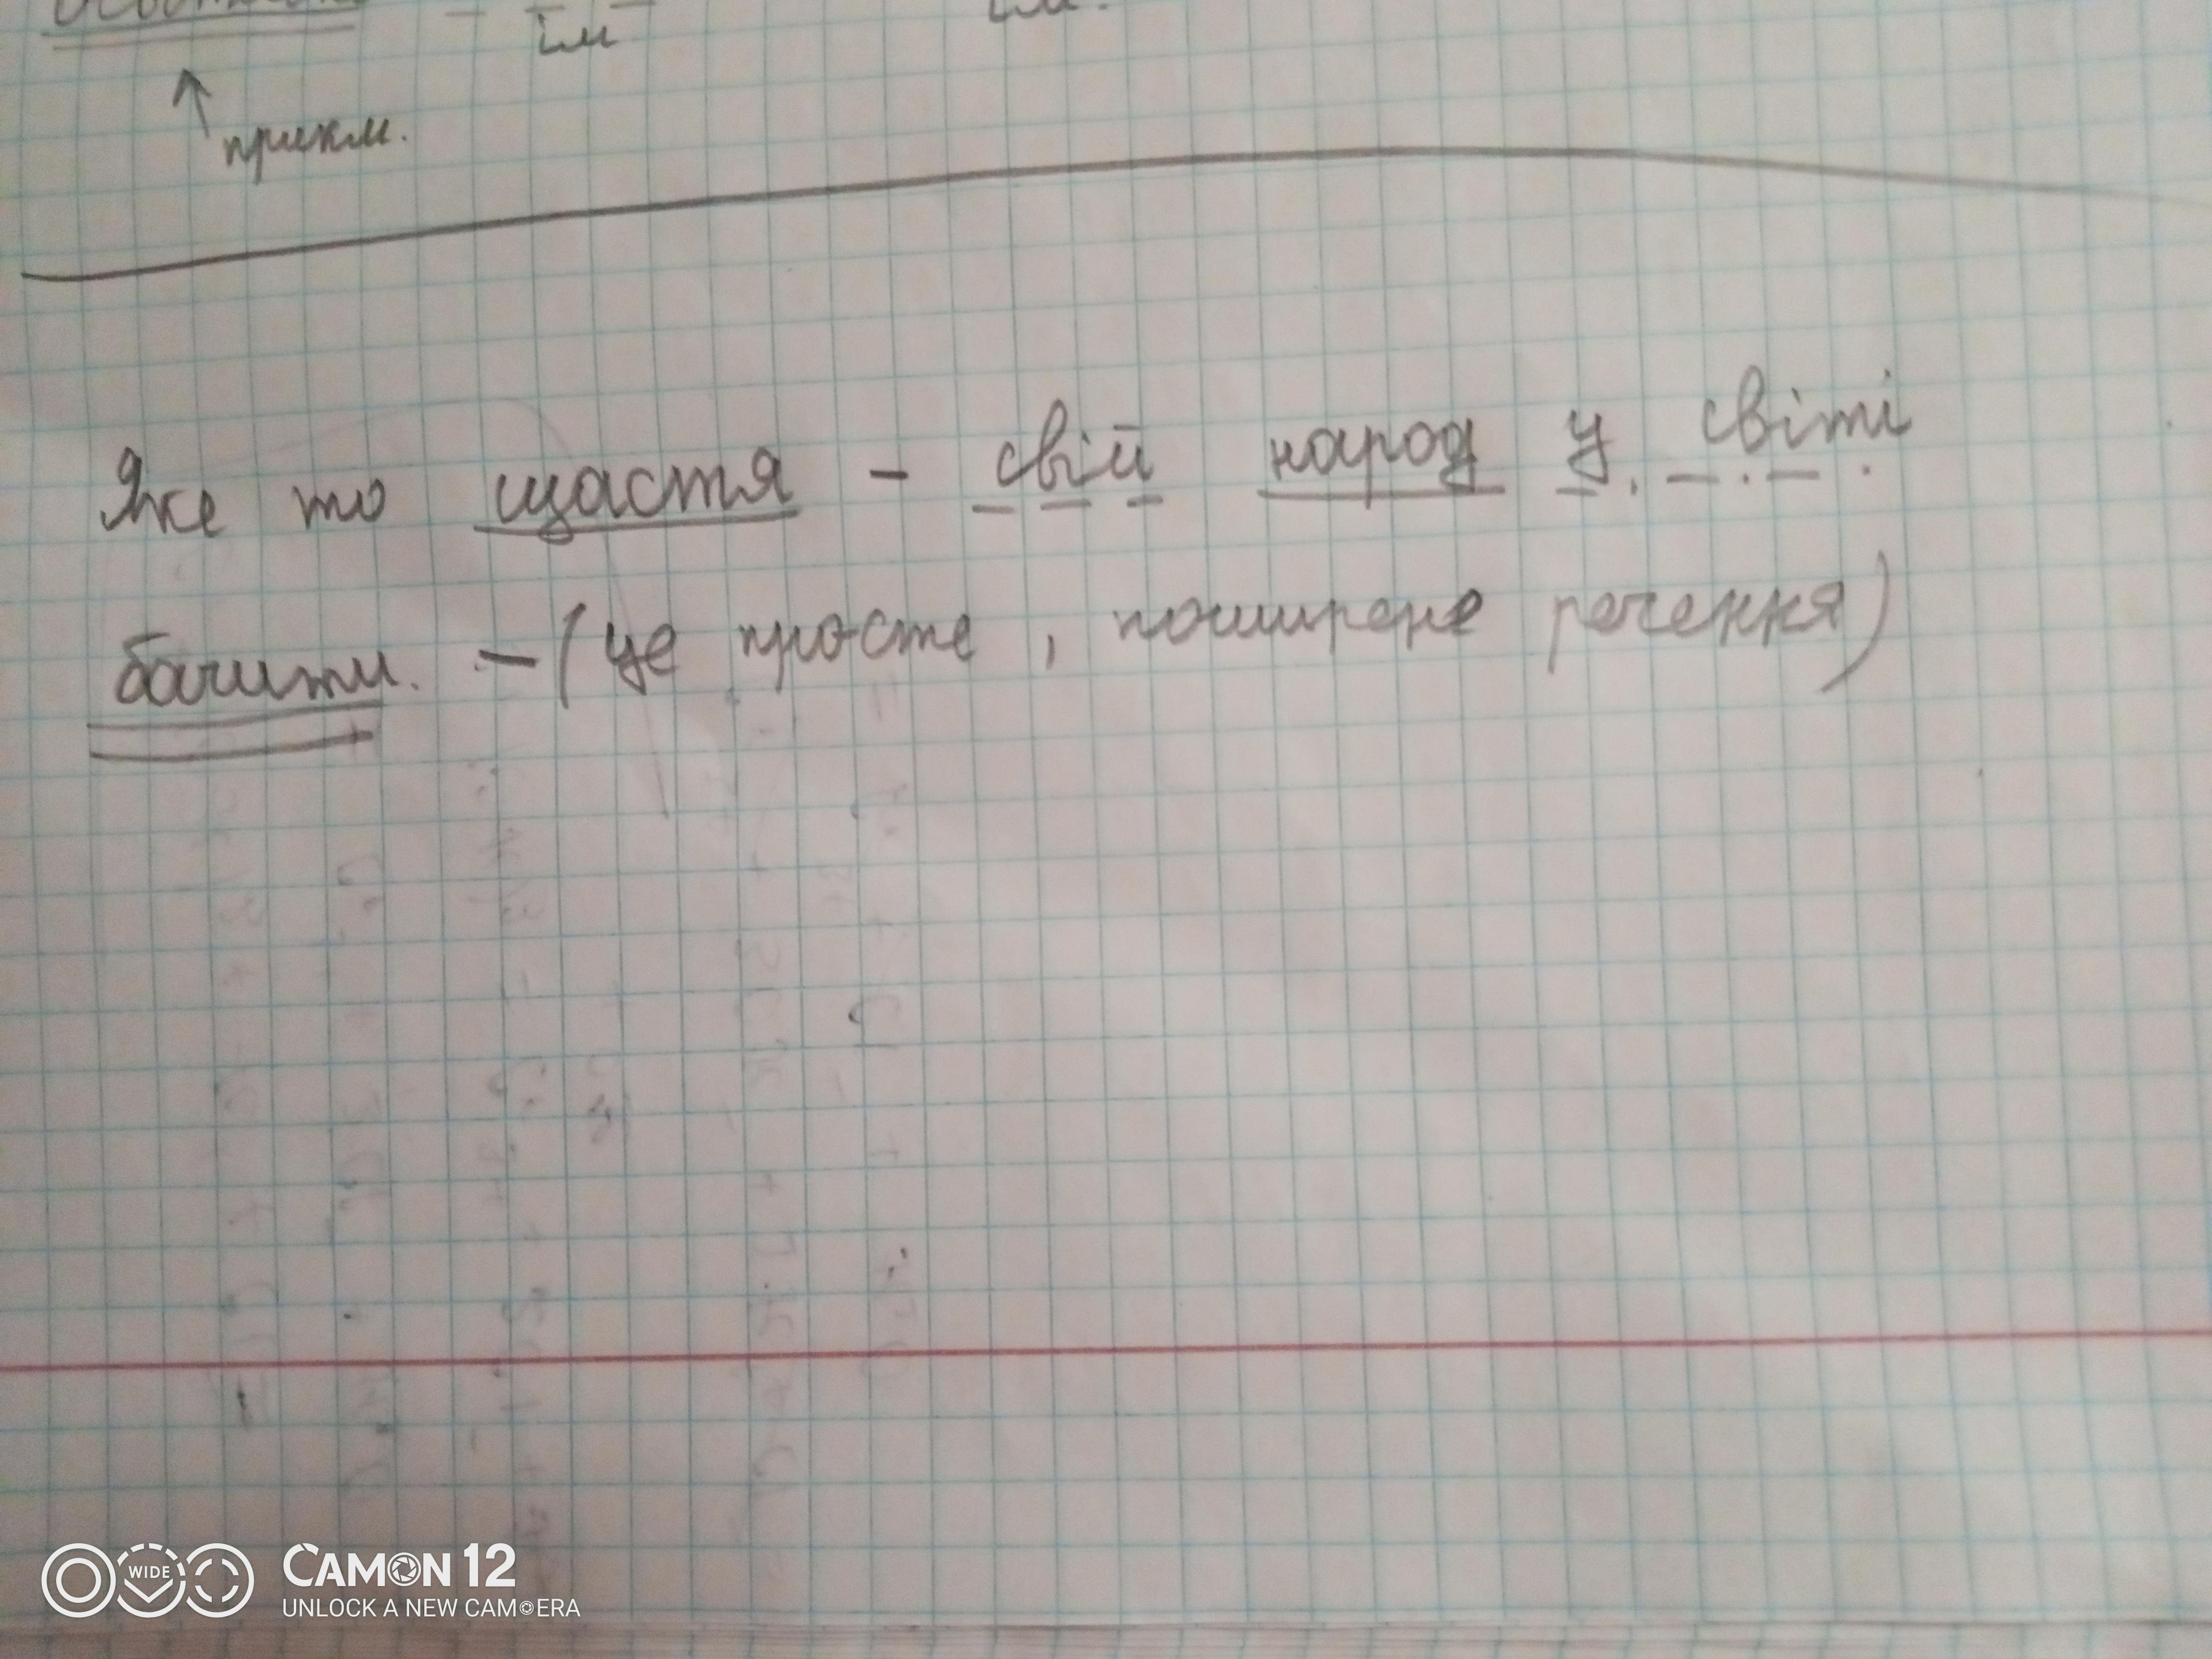 їм
прикм.
Яке то щастя - свій народ у світі
бачити. - (це просте, поширене речення)
WIDE
CAMON 12
UNLOCK A NEW CAMERA